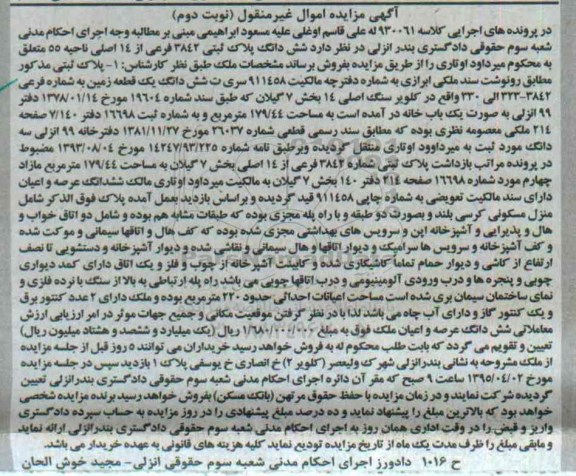 آگهی مزایده اموال غیرمنقول (نوبت دوم)
در پرونده های اجرایی کلاسه ۹۳۰۰۶۱ له علی قاسم اوغلی علیه مسعود ابراهیمی مبنی بر مطالبه وجه اجرای احکام مدنی
شعبه سوم حقوقی دادگستری بندر انزلی در نظر دارد شش دانگ پلاک ثبتی ۳۸۴۲ فرعی از ۱۴ اصلی ناحیه ۵۵ متعلق
به محکوم میرداود اوتاری را از طریق مزایده بفروش برساند مشخصات ملک طبق نظر کارشناس: ۱- پلاک ثبتی مذکور
مطابق رونوشت سند ملکی ابرازی به شماره دفترچه مالکیت ۹۱۱۴۵۸ سری ت شش دانگ یک قطعه زمین به شماره فرعی
۳۸۴۲-۳۲۳ الی ۳۳۰ واقع در کلویر سنگ اصلی ۱۴ بخش ۷ گیلان که طبق سند شماره ۱۹۶۰۴ مورخ ۱۳۷۸/۰۱/۱۴ دفتر
۹۹ انزلی به صورت یک باب خانه در آمده است به مساحت ۱۷۹/۴۴ مترمربع و به شماره ثبت ۱۶۶۹۸ دفتر ۷/۱۴۰ صفحه
۲۱۴ ملکی معصومه نظری بوده که مطابق سند رسمی قطعی شماره ۲۶۰۳۷ مورخ ۱۳۸۱/۱۱/۲۷ دفترخانه ۹۹ انزلی سه
دانگ مورد ثبت به میرداوود اوتاری منتقل گردیده وبرطبق نامه شماره ۱۴۲۴۷/۹۳/۲۲۵ مورخ ۱۳۹۳/۰۸/۰۴ مضبوط
در پرونده مراتب بازداشت پلاک ثبتی شماره ۳۸۴۲ فرعی از ۱۴ اصلی بخش ۷ گیلان به مساحت ۱۷۹/۴۴ مترمربع مازاد
چهارم مورد شماره ۱۶۶۹۸ صفحه ۲۱۴ دفتر ۱۴۰ بخش ۷ گیلان به مالکیت میرداود اوتاری مالک ششدانگ عرصه و اعیان
دارای سند مالکیت تعویضی به شماره چاپی ۹۱۱۴۵۸ قید گردیده و براساس بازدید بعمل آمده پلاک فوق الذکر شامل
منزل مسکونی کرسی بلند و بصورت دو طبقه و با راه پله مجزی بوده که طبقات مشابه هم بوده و شامل دو اتاق خواب و
هال و پذیرایی و آشپزخانه اپن و سرویس های بهداشتی مجزی شده بوده که کف هال و اتاقها سیمانی و موکت شده
و کف آشپزخانه و سرویس ها سرامیک و دیوار اتاقها و هال سیمانی و نقاشی شده و دیوار آشپزخانه و دستشویی تا نصف
ارتفاع از کاشی و دیوار حمام تماما کاشیکاری شده و کابینت آشپزخانه از چوب و فلز و یک اتاق دارای کمد دیواری
چوبی و پنجره ها و درب ورودی آلومینیومی و درب اتاقها چوبی می باشد راه پله ارتباطی به بالا از سنگ با نرده فلزی و
نمای ساختمان سیمان بری شده است مساحت اعیانات احداثی حدود ۲۲۰ مترمربع بوده و ملک دارای ۲ عدد کنتور برق
و یک کنتور گاز و دارای آب چاه می باشد لذا با در نظر گرفتن موقعیت مکانی و جمیع جهات موثر در امر ارزیابی ارزش
معاملاتی شش دانگ عرصه و اعیان ملک فوق به مبلغ ریال (یک میلیارد و ششصد و هشتاد میلیون ریال)
تعیین و تقویم می گردد که بابت طلب محکوم له به فروش خواهد رسید خریداران می توانند ۵ روز قبل از جلسه مزایده
از ملک مشروحه به نشانی بندرانزلی شهرک ولیعصر (کلویر ۲) خ انصاری خ یوسفی پلاک ۱ بازدید سپس در جلسه مزایده
مورخ ۱۳۹۵/۰۴/۰۲ ساعت ۹ صبح که مقر آن دائره اجرای احکام مدنی شعبه سوم حقوقی دادگستری بندرانزلی تعیین
گردیده شرکت نمایند و در زمان مزایده با حفظ حقوق مرتهن (بانک مسکن) بفروش خواهد رسید برنده مزایده شخصی
خواهد بود که بالاترین مبلغ را پیشنهاد نماید و ده درصد مبلغ پیشنهادی را در روز مزایده به حساب سپرده دادگستری
واریز و قبض را در وقت اداری همان روز به اجرای احکام مدنی شعبه سوم حقوقی دادگستری بندرانزلی ارائه نماید
و مابقی مبلغ را ظرف مدت یک ماه از تاریخ مزایده تودیع نماید کلیه هزینه های قانونی به عهده خریدار می باشد.
ح ۱۰۱۶ دادورز اجرای احکام مدنی شعبه سوم حقوقی انزلی- مجید خوش الحان